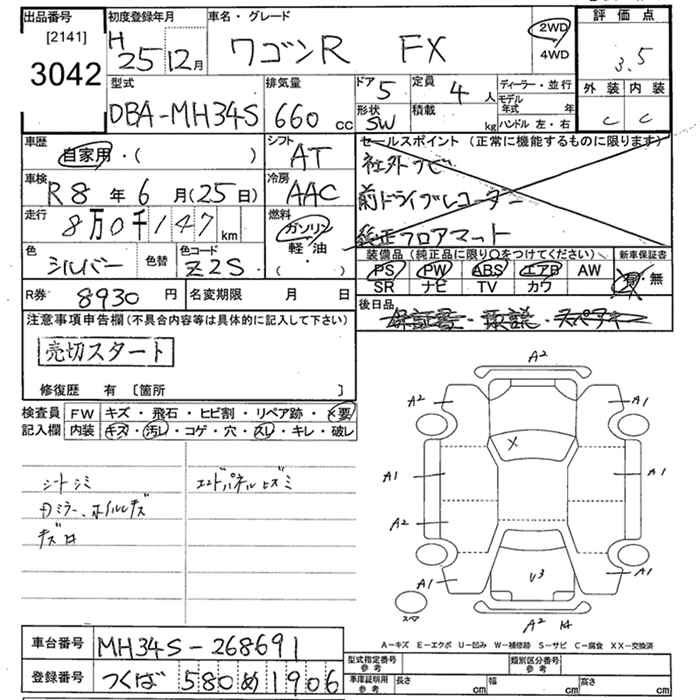 出品番号 初度登録年月 車名・グレード 評価点
[2141] H 25 12月 ワゴンR FX 2WD 3.5
3042 4WD
型式 排気量 ドア 5 定員 4人 ディーラー・並行 外装 内装
DBA-MH34S 660cc 形状 SW 積載 kg モデル年式 年 C C
ハンドル 左・右
車歴 シフト セールスポイント (正常に機能するものに限ります)
自家用・( ) AT 社外ナビ
車検 冷房 前ドライブレコーダー
R8年6月(25日) AAC 純正フロアマット
走行 燃料
8万0千147km ガソリン
軽・油
( )
色 色替 色コード 装備品 (純正品に限り○をつけてください) 新車保証書
シルバー Z2S PS PW ABS エアB AW 有・無
SR ナビ TV カワ
R券 8930円 名変期限 月 日 後日品
保証書・取説・スペアキー
注意事項申告欄(不具合内容等は具体的に記入して下さい)
売切スタート
修復歴 有 〔箇所 〕
検査員 FW キズ・飛石・ヒビ割・リペア跡・×要
記入欄 内装 キズ・汚レ・コゲ・穴・スレ・キレ・破レ
シートシミ エンドパネルヒズミ
ホイルキズ
A2
A2 A1
X
A1 A1
A2
A1 U3 A1
スペア
A2
A-キズ E-エクボ U-凹み W-補修跡 S-サビ C-腐食 XX-交換済
車台番号 MH34S-268691
登録番号 つくば 580 め 1906
型式指定番号 参考 類別区分番号 参考
車庫証明用 参考 長さ cm 幅 cm 高さ cm